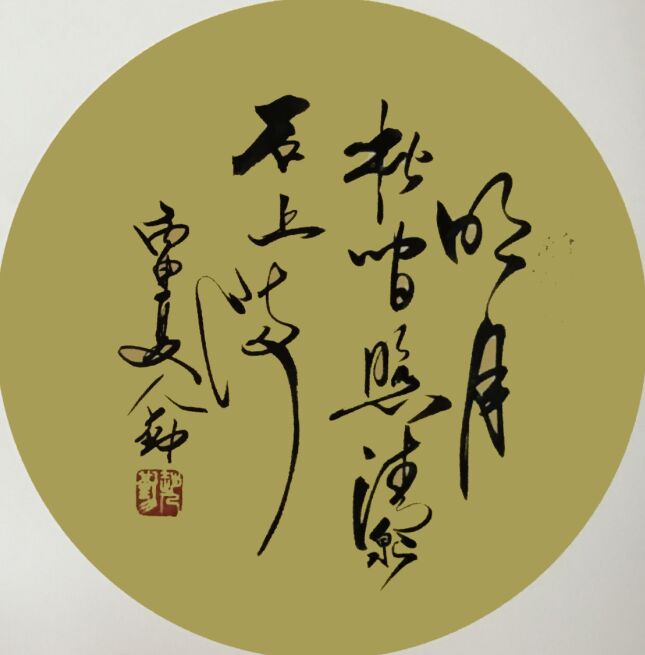 明月
松间照清泉
石上流
丙申夏人